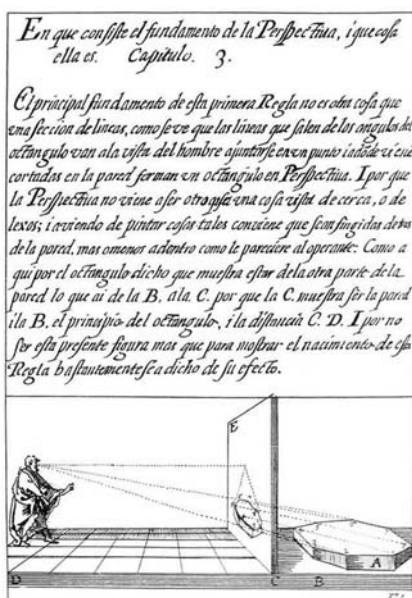 En que consiste el fundamento de la Perspectiua, i que cosa
ella es. Capitulo. 3.
El principal fundamento de esta primera Regla no es otra cosa que
vna seccion de lineas, como se ve que las lineas que salen de los angulos del
octangulo van ala vista del hombre ajuntarse en vn punto i adode viene
cortadas en la pared forman vn octangulo en Perspectiua. I por que
la Perspectiua no viene a ser otro que vna cosa vista de cerca, o de
lexos; i aviendo de pintar cosas tales conviene que sean fingidas detras
de la pared, mas o menos adentro como le pareciere al operante: Como a
qui por el octangulo dicho que muestra estar dela otra parte de la
pared lo que ai de la B. ala C. por que la C. muestra ser la pared
i la B, el principio del octangulo, i la distancia C. D. I por no
ser esta presente figura mas que para mostrar el nacimiento de esta
Regla bastantemente se a dicho de su efecto.
E
A
D C B